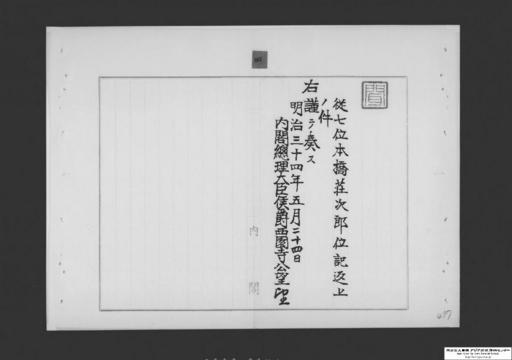 從七位本橋荘次郎位記返上
ノ件
右謹テ奏ス
明治三十四年五月二十四日
内閣總理大臣侯爵西園寺公望
内閣